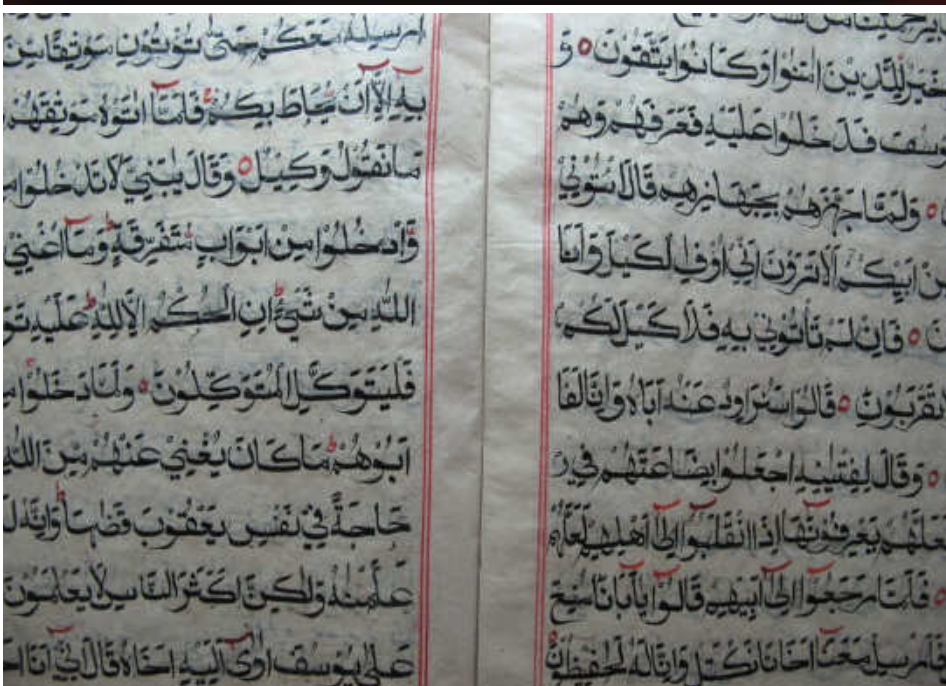 خير للذين امنوا وكانوا يتقون ٥ و
يوسف فدخلوا عليه فعرفهم وهم
٥ ولما جهزهم بجهازهم قال ائتوني
من ابيكم الا ترون اني اوفي الكيل وانا
٥ فان لم تأتوني به فلا كيل لكم
تقربون ٥ قالوا سنراود عنه اباه وانا لفا
٥ وقال لفتينه اجعلوا بضاعتهم في ر
لعلهم يعرفونها اذا انقلبوا الى اهلهم لعلهم
٥ فلما رجعوا الى ابيهم قالوا يا ابانا منع
فارسل معنا اخانا نكتل وانا له لحفظون
ارسله معكم حتى تؤتون موثقا من
به الا ان يحاط بكم فلما اتوه موثقهم
ما نقول وكيل ٥ وقال يبني لا تدخلوا
وادخلوا من ابواب متفرقة وما اغني
الله من شيء ان الحكم الا لله عليه تو
فليتوكل المتوكلون ٥ ولما دخلوا
ابوهم ما كان يغني عنهم من الله
حاجة في نفس يعقوب قضها وانه ل
علمنه ولكن اكثر الناس لا يعلمون
على يوسف اوى اليه اخاه قال اني انا اخ